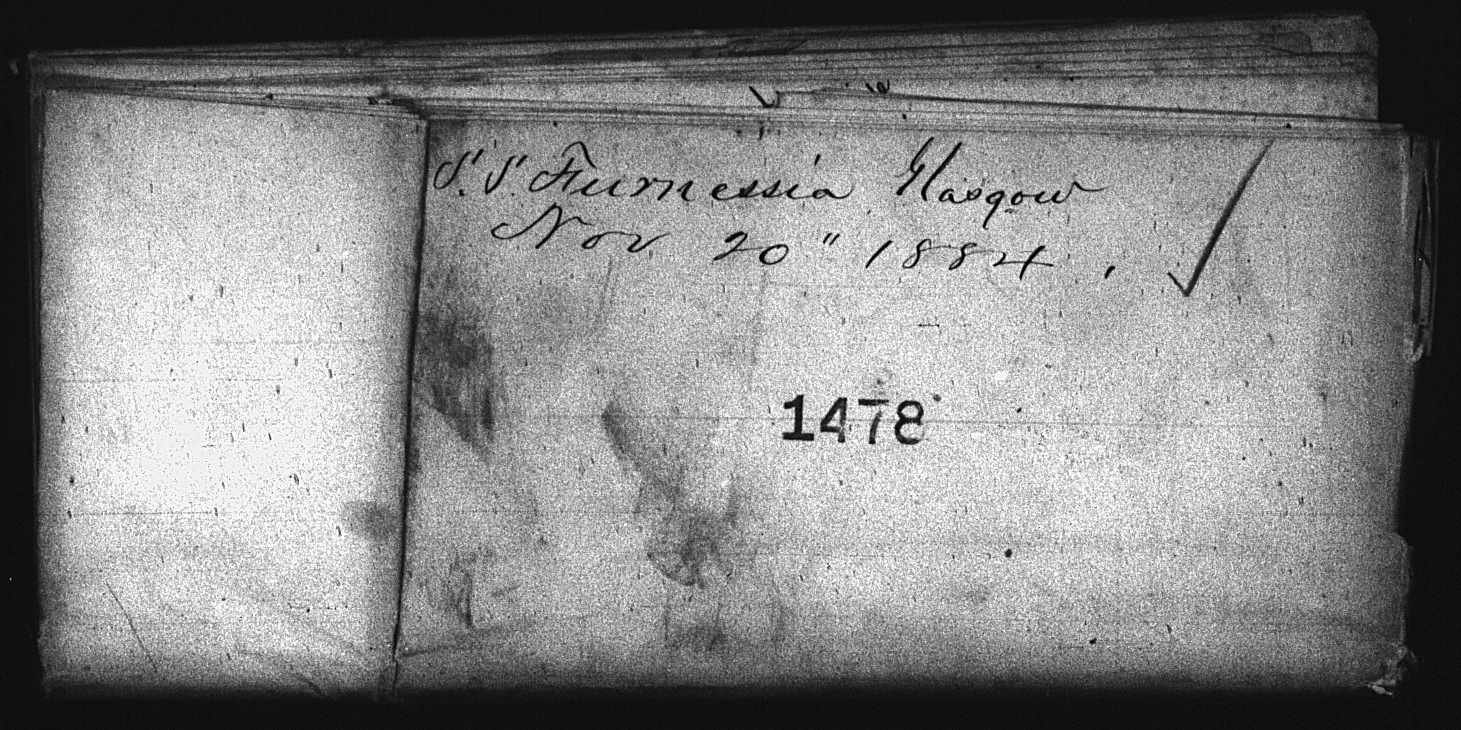 S.S. Furnessia Glasgow
Nov 20" 1884.
1478